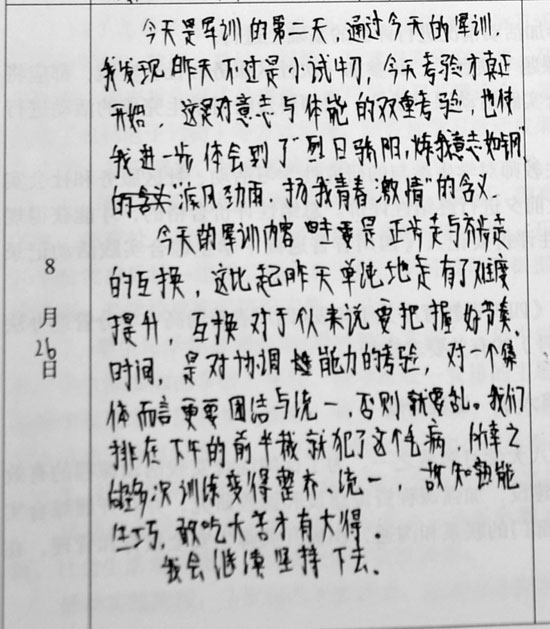 今天是军训的第二天，通过今天的军训，
我发现昨天不过是小试牛刀，今天考验才真正
开始。这是对意志与体能的双重考验，也使
我进一步体会到了"烈日骄阳，炼我意志如钢"
的含义"疾风劲雨，扬我青春激情"的含义.
今天的军训内容 主要是正步走与齐步走
的互换，这比起昨天单纯地走有了难度
提升，互换对于个人来说要把握好节奏、
时间，是对协调性能力的考验，对一个集
体而言更要团结与统一，否则就要乱。我们
排在下午的前半截就犯了这个毛病，所幸之
后多次训练变得整齐、统一，故知熟能
生巧，敢吃大苦才有大得.
我会继续坚持下去.
8
月
26
日